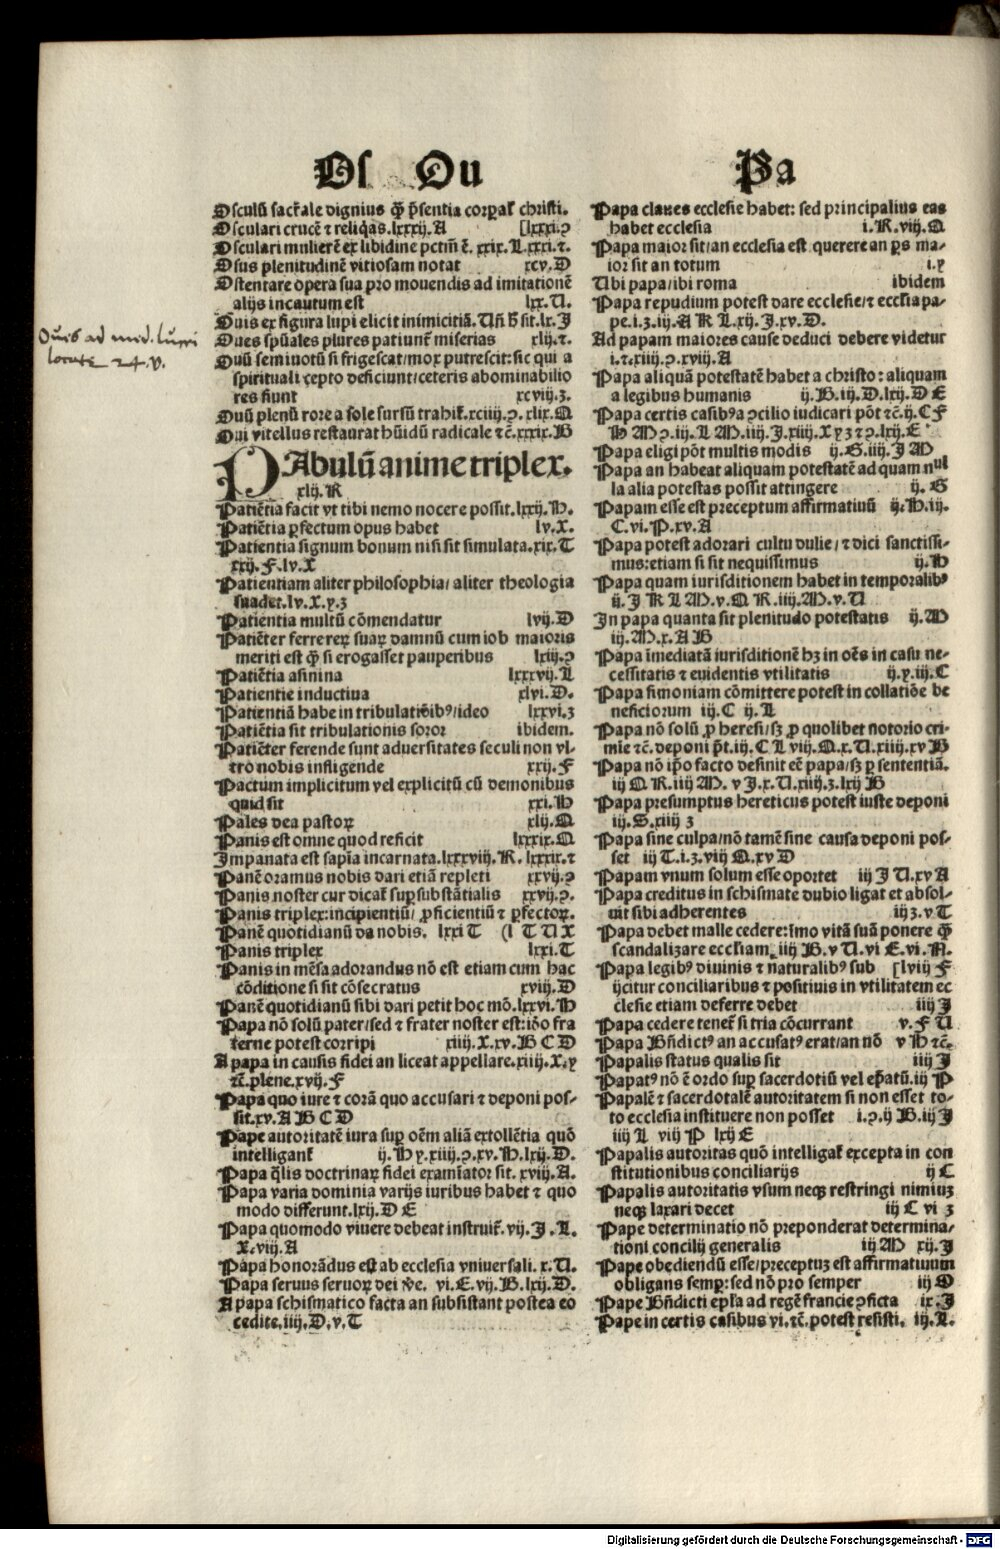 Os Ou
Osculū sacr̄ale dignius q̄ꝫ p̄sentia corꝑaƚ christi.
Osculari crucē ⁊ reliq̄as.lxxxij.A [lxxxi.ꝯ
Osculari mulierē ex libidine pctm̄ ē. xxix.L.xxxi.⁊.
Osus plenitudinē vitiosam notat xcv.D
Ostentare opera sua pro movendis ad imitationē
alijs incautum est lxx.U.
Ouis ex figura lupi elicit inimicitiā. Un̄ ƀ sit.lx.J
Oues spūales plures patiunt̄ miserias xlij.⁊.
Ouū semi notū si frigescat/mox putrescit: sic qui a
spirituali cepto deficiunt/ceteris abominabilio
res fiunt xcviij.ʒ.
Ouū plenū rore a sole sursū trahit̄.xciiij.ꝯ.xlix.Q
Oui vitellus restaurat hūidū radicale ⁊c̄.xxxix.B
PAbulū anime triplex.
xlij.R
Patiētia facit vt tibi nemo nocere possit.lxxij.H.
Patiētia ꝑfectum opus habet lv.X.
Patientia signum bonum nisi sit simulata.xix.T
xxij.F.lv.X
Patientiam aliter philosophia/ aliter theologia
suadet.lv.X.y.ʒ
Patientia multū cōmendatur lvij.D
Patiēter ferre reꝝ suaꝝ damnū cum iob maioris
meriti est q̄ꝫ si erogasset pauperibus lxiij.ꝯ
Patiētia asinina lxxxvij.L
Patientie inductiua xlvi.D.
Patientiā habe in tribulatiōibꝰ/ideo lxxvi.ʒ
Patiētia sit tribulationis soror ibidem.
Patiēter ferende sunt aduersitates seculi non vl-
tro nobis infligende xxij.F
Pactum implicitum vel explicitū cū demonibus
quid sit xxi.H
Pales dea pastoꝝ xlij.Q
Panis est omne quod reficit lxxxix.Q
Impanata est sapīa incarnata.lxxxviij.R.lxxxix.⁊
Panē oramus nobis dari etiā repleti xxvij.ꝯ
Panis noster cur dicaƚ suꝑsubstātialis xxvij.ꝯ.
Panis triplex:incipientiū/ ꝓficientiū ⁊ ꝑfectoꝝ.
Panē quotidianū da nobis. lxxi T (l T U X
Panis triplex lxxi.T
Panis in mēsa adorandus nō est etiam cum hac
cōditione si sit cōsecratus xviij.D
Panē quotidianū sibi dari petit hoc mō.lxxvi.H
Papa nō solū pater/sed ⁊ frater noster est:iō fra
terne potest corripi xiiij.X.xv.B C D
A papa in causis fidei an liceat appellare.xiiij.X.y
⁊c̄.plene.xvij.F
Papa quo iure ⁊ corā quo accusari ⁊ deponi pos-
sit.xv.A B C D
Pape autoritatē iura suꝑ oēm aliā extollētia quō
intelligant̄ ij.H y.xiiij.ꝯ.xv.H.lxij.D.
Papa q̄lis doctrinaꝝ fidei examiator sit. xviij.A.
Papa varia dominia varijs iuribus habet ⁊ quo
modo differunt.lxij.D E
Papa quomodo viuere debeat instruit̄.vij.J.L.
X.viij.A
Papa honorādus est ab ecclesia vniuersali.x.U.
Papa seruus seruoꝝ dei ⁊c̄. vi.E.vij.B.lxij.D.
A papa schismatico facta an subsistant postea eo
cedite.iiij.D.v.T
Pa
Papa claues ecclesie habet: sed principalius eas
habet ecclesia i.K.viij.Q
Papa maior sit/an ecclesia est querere an ꝑs ma-
ior sit an totum i.y
Ubi papa/ibi roma ibidem
Papa repudium potest dare ecclesie/⁊ ecclīa pa-
pe.i.ʒ.iij.A K L.xij.J.xv.D.
Ad papam maiores cause deduci debere videtur
i.⁊.xiiij.ꝯ.xviij.A
Papa aliquā potestatē habet a christo: aliquam
a legibus humanis ij.B.iij.D.lxij.D E
Papa certis casibꝰa ꝯcilio iudicari pōt ⁊c̄.ij.C F
H M ꝯ.iij.L M.iiij.J.xiiij.X y ʒ ⁊ ꝯ.lxij.E
Papa eligi pōt multis modis ij.G.iiij.J M
Papa an habeat aliquam potestatē ad quam nul
la alia potestas possit attingere ij.G
Papam esse est preceptum affirmatiuū ij.H.iij.
C.vi.P.xv.A
Papa potest adorari cultu dulie/⁊ dici sanctissi-
mus:etiam si sit nequissimus ij.H
Papa quam iurisditionem habet in temporalibꝰ
ij.J K L M.v.Q R.iiij.M.v.U
In papa quanta sit plenitudo potestatis ij.M
iij.M.x.A B
Papa īmediatā iurisditionē hꝫ in oēs in casu ne-
cessitatis ⁊ euidentis vtilitatis ij.y.iij.C
Papa simoniam cōmittere potest in collatiōe be
neficiorum iij.C ij.L
Papa nō solū ꝓ heresi/sꝫ ꝓ quolibet notorio cri-
mīe ⁊c̄. deponi pōt.iij.C L viij.Q.x.U.xiiij.xv B
Papa nō ip̄o facto definit eē papa/sꝫ ꝑ sententiā.
iij Q R.iiij M. v J.x.U.xiiij.ʒ.lxij B
Papa presumptus hereticus potest iuste deponi
iij.S.xiiij ʒ
Papa sine culpa/nō tamē sine causa deponi pos-
set iij T.i.ʒ.viij Q.xv D
Papam vnum solum esse oportet iij J U.xv A
Papa creditus in schismate dubio ligat ⁊ absol-
uit sibi adherentes iij ʒ.v T
Papa debet malle cedere:īmo vitā suā ponere q̄ꝫ
scandalizare ecclīam. iiij B.v U.vi E.vi.N.
Papa legibꝰ diuinis ⁊ naturalibꝰ sub [lviij F
ijcitur conciliaribus ⁊ positiuis in vtilitatem ec
clesie etiam deferre debet iiij J
Papa cedere tenet̄ si tria cōcurrant v.F U
Papa Bn̄dictꝰ an accusatꝰ erat/an nō v H ⁊c̄.
Papalis status qualis sit iiij J
Papatꝰ nō ē ordo suꝑ sacerdotiū vel ep̄atū.iij P
Papalē ⁊ sacerdotalē autoritatem si non esset to-
to ecclesia instituere non posset i.ꝯ.ij B.iij J
iiij L viij P lxij E
Papalis autoritas quō intelligaƚ excepta in con
stitutionibus conciliarijs ij C
Papalis autoritatis vsum neqꝫ restringi nimiuꝫ
neqꝫ laxari decet iij C vi ʒ
Pape determinatio nō preponderat determina-
tioni concilij generalis iij M xij.J
Pape obediendū esse/preceptuꝫ est affirmatiuum
obligans semꝑ:sed nō pro semper iij O
Pape Bn̄dicti epl̄a ad regē francie ꝯficta ix.J
Pape in certis casibus vi.⁊c̄.potest resisti. iij.L.
Ouis ad med. luppi
locate 24.v.
Digitalisierung gefördert durch die Deutsche Forschungsgemeinschaft - DFG